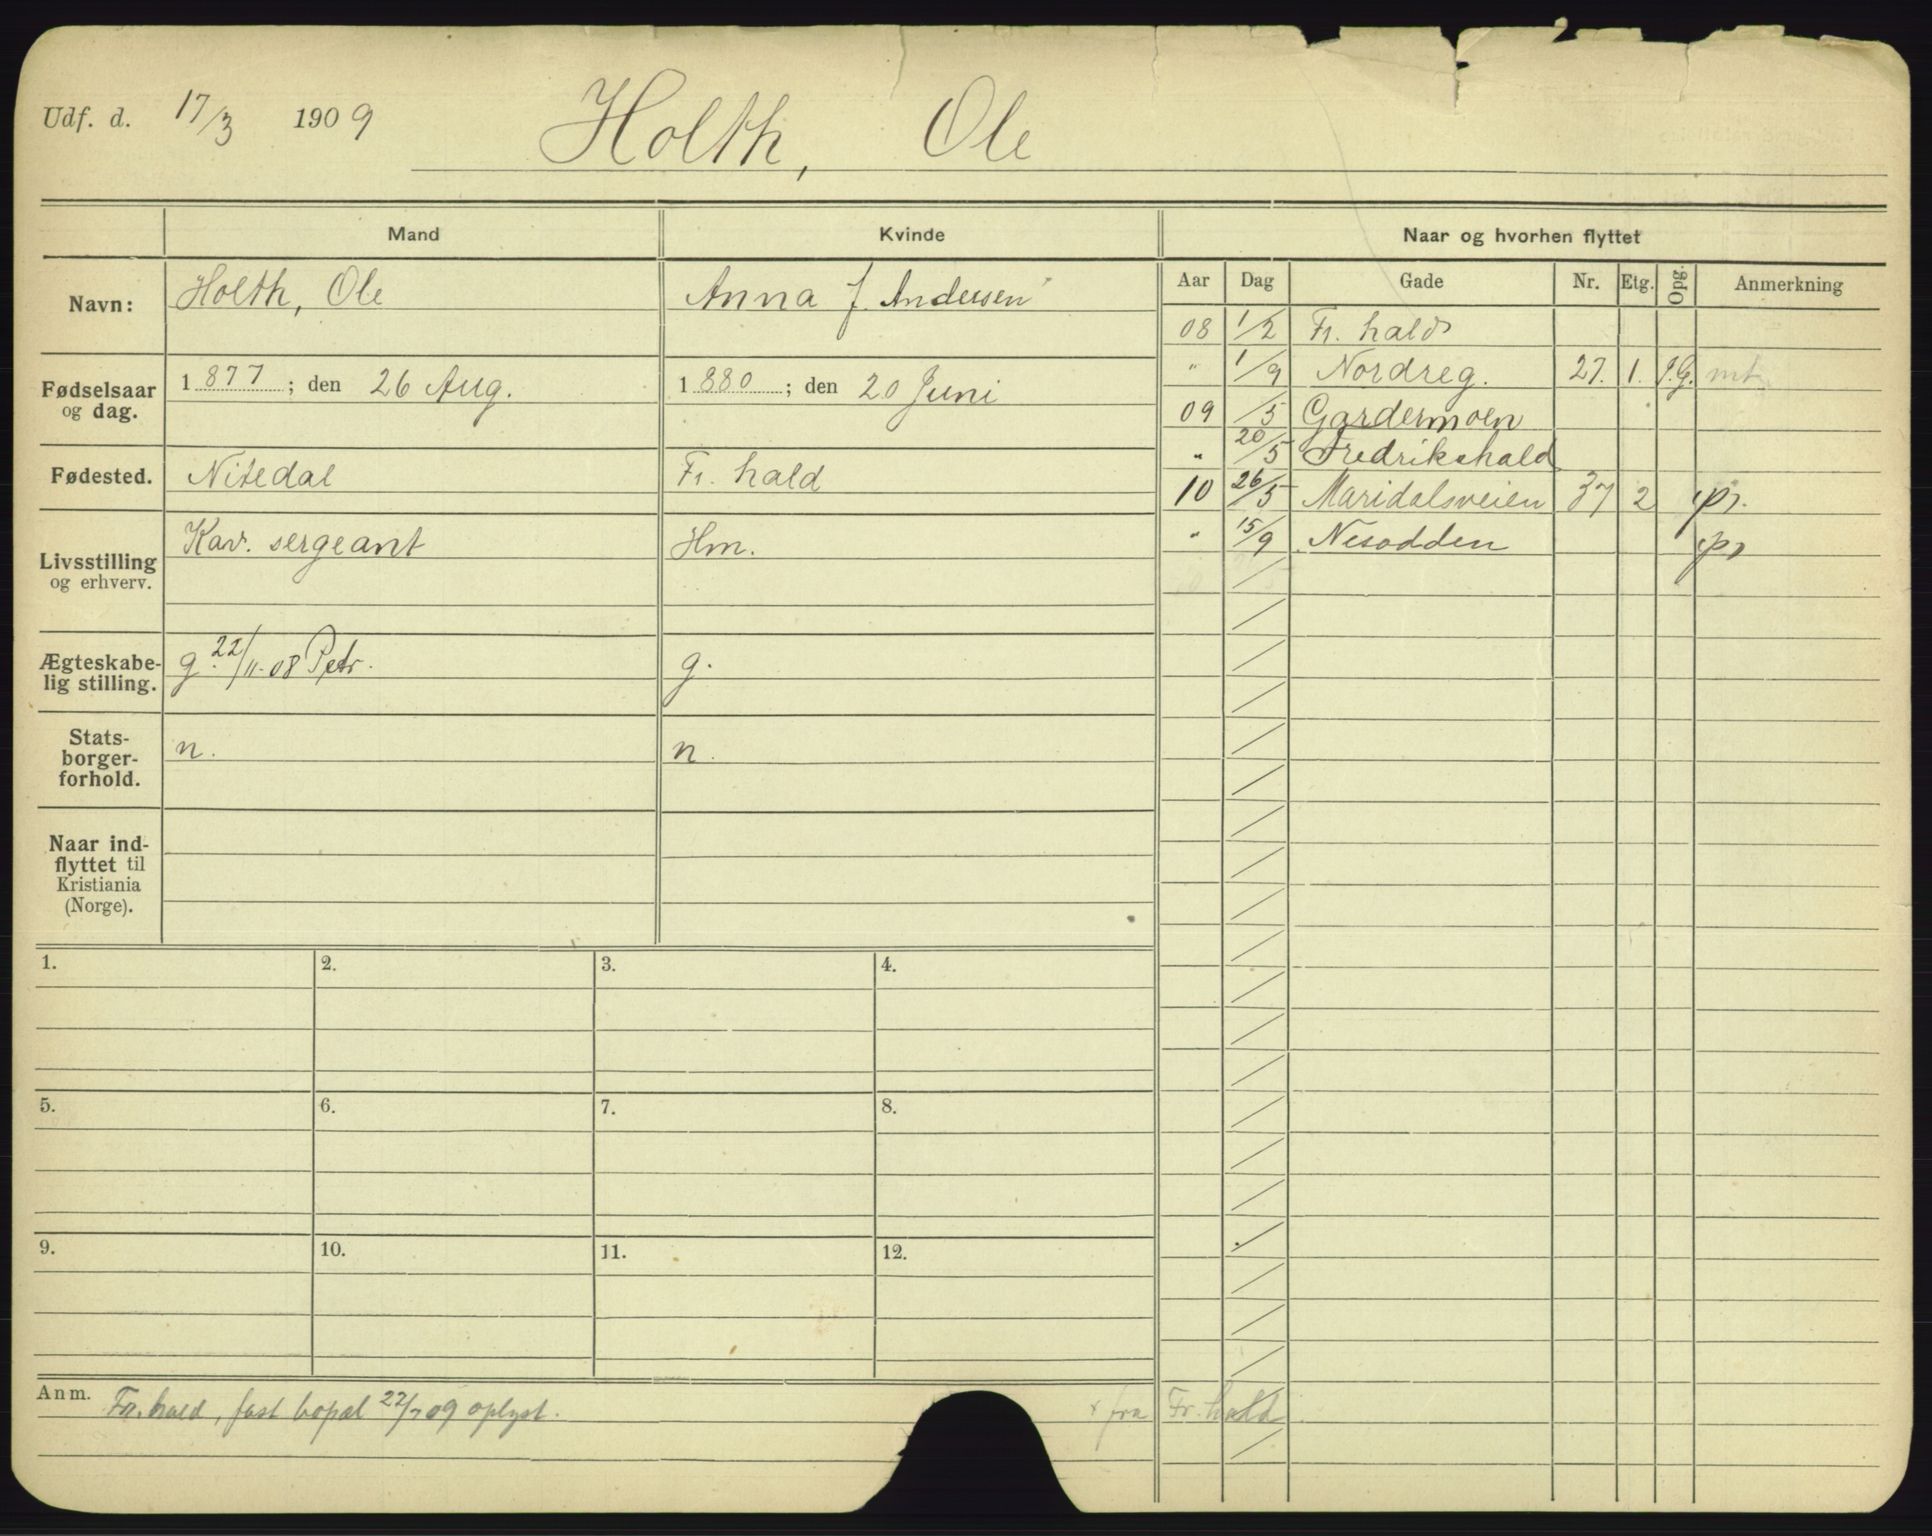 Udf. d. 17/3 1909 Holth, Ole
Mand Kvinde Naar og hvorhen flyttet
Aar Dag Gade Nr. Etg. Opg. Anmerkning
Navn: Holth, Ole Anna J. Andersen
Fødselsaar og dag. 1877; den 26 Aug. 1880; den 20 Juni
Fødested. Nitedal Fr. hald
Livsstilling og erhverv. Kav. sergeant Hm.
Ægteskabe-
lig stilling. g. 22/11-08 Petr. g.
Stats-
borger-
forhold. n. n.
Naar ind-
flyttet til
Kristiania
(Norge).
08 1/2 Fr. hald
" 1/9 Nordreg. 27. 1. J.G. mt.
09 /5 Gardermoen
" 20/5 Fredrikshald
10 26/5 Maridalsveien 37 2 pr.
" 15/9 Nesodden pr
1. 2. 3. 4.
5. 6. 7. 8.
9. 10. 11. 12.
Anm. Fr. hald, fast bopæl 22/7 09 oplyst. fra Fr. hald